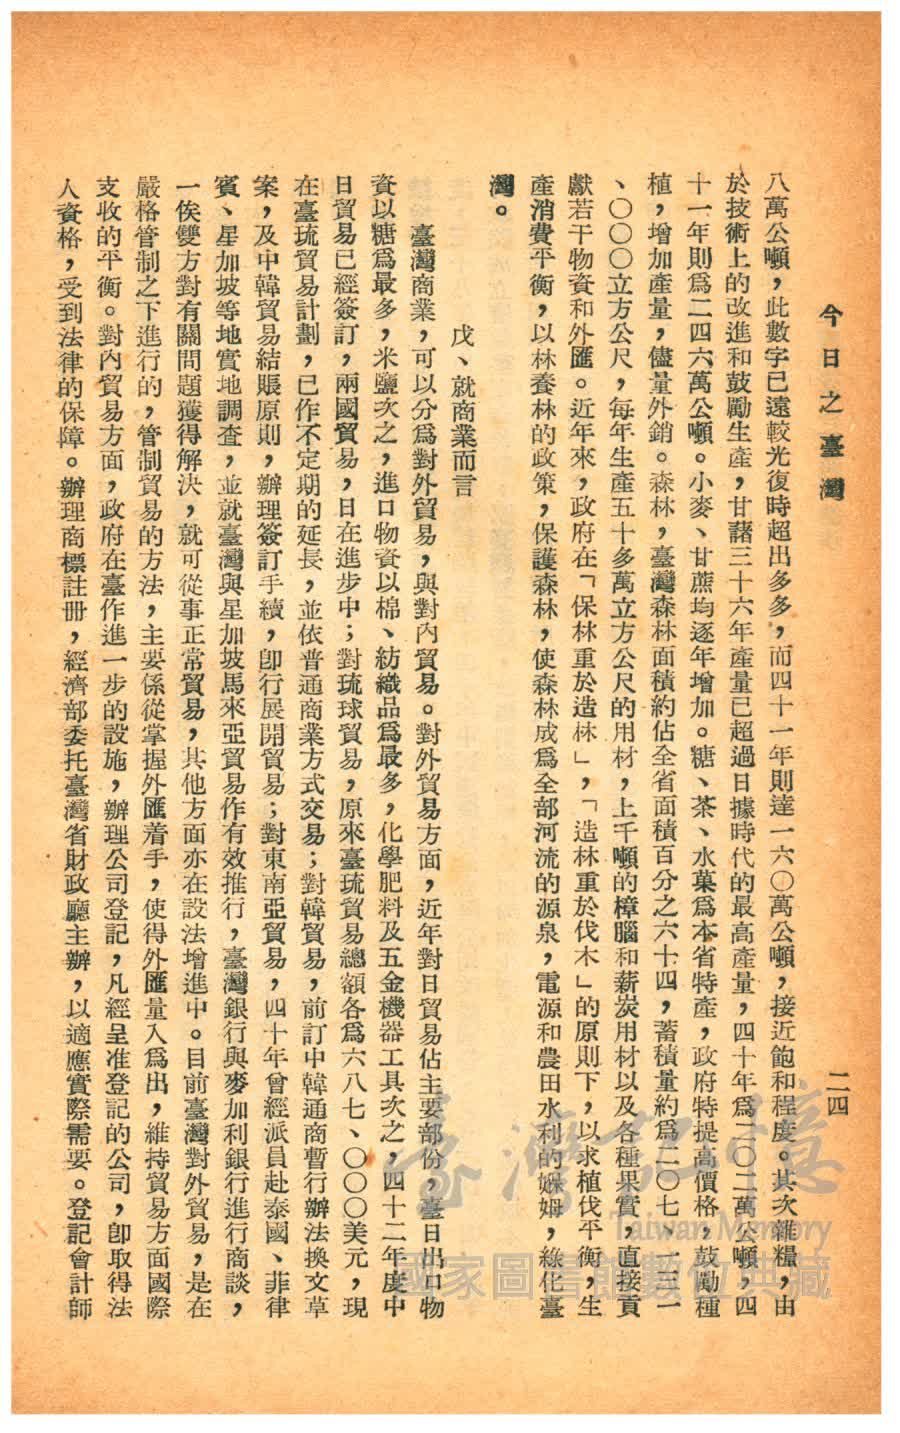 今日之臺灣
二四
八萬公噸，此數字已遠較光復時超出多多，而四十一年則達一六〇萬公噸，接近飽和程度。其次雜糧，由
於技術上的改進和鼓勵生產，甘藷三十六年產量已超過日據時代的最高產量，四十年爲二〇二萬公噸，四
十一年則爲二四六萬公噸。小麥、甘蔗均逐年增加。糖、茶、水菓爲本省特產，政府特提高價格，鼓勵種
植，增加產量，儘量外銷。森林，臺灣森林面積約佔全省面積百分之六十四，蓄積量約爲二〇七、一三一
、〇〇〇立方公尺，每年生產五十多萬立方公尺的用材，上千噸的樟腦和薪炭用材以及各種果實，直接貢
獻若干物資和外匯。近年來，政府在「保林重於造林」，「造林重於伐木」的原則下，以求植伐平衡，生
產消費平衡，以林養林的政策，保護森林，使森林成爲全部河流的源泉，電源和農田水利的媬姆，綠化臺
灣。
戊、就商業而言
臺灣商業，可以分爲對外貿易，與對內貿易。對外貿易方面，近年對日貿易佔主要部份，臺日出口物
資以糖爲最多，米鹽次之，進口物資以棉、紡織品爲最多，化學肥料及五金機器工具次之，四十二年度中
日貿易已經簽訂，兩國貿易，日在進步中；對琉球貿易，原來臺琉貿易總額各爲六八七、〇〇〇美元，現
在臺琉貿易計劃，已作不定期的延長，並依普通商業方式交易；對韓貿易，前訂中韓通商暫行辦法換文草
案，及中韓貿易結賬原則，辦理簽訂手續，卽行展開貿易；對東南亞貿易，四十年曾經派員赴泰國、菲律
賓、星加坡等地實地調查，並就臺灣與星加坡馬來亞貿易作有效推行，臺灣銀行與麥加利銀行進行商談，
一俟雙方對有關問題獲得解決，就可從事正常貿易，其他方面亦在設法增進中。目前臺灣對外貿易，是在
嚴格管制之下進行的，管制貿易的方法，主要係從掌握外匯着手，使得外匯量入爲出，維持貿易方面國際
支收的平衡。對內貿易方面，政府在臺作進一步的設施，辦理公司登記，凡經呈准登記的公司，卽取得法
人資格，受到法律的保障。辦理商標註冊，經濟部委托臺灣省財政廳主辦，以適應實際需要。登記會計師
臺灣記憶
Taiwan Memory
國家圖書館數位典藏